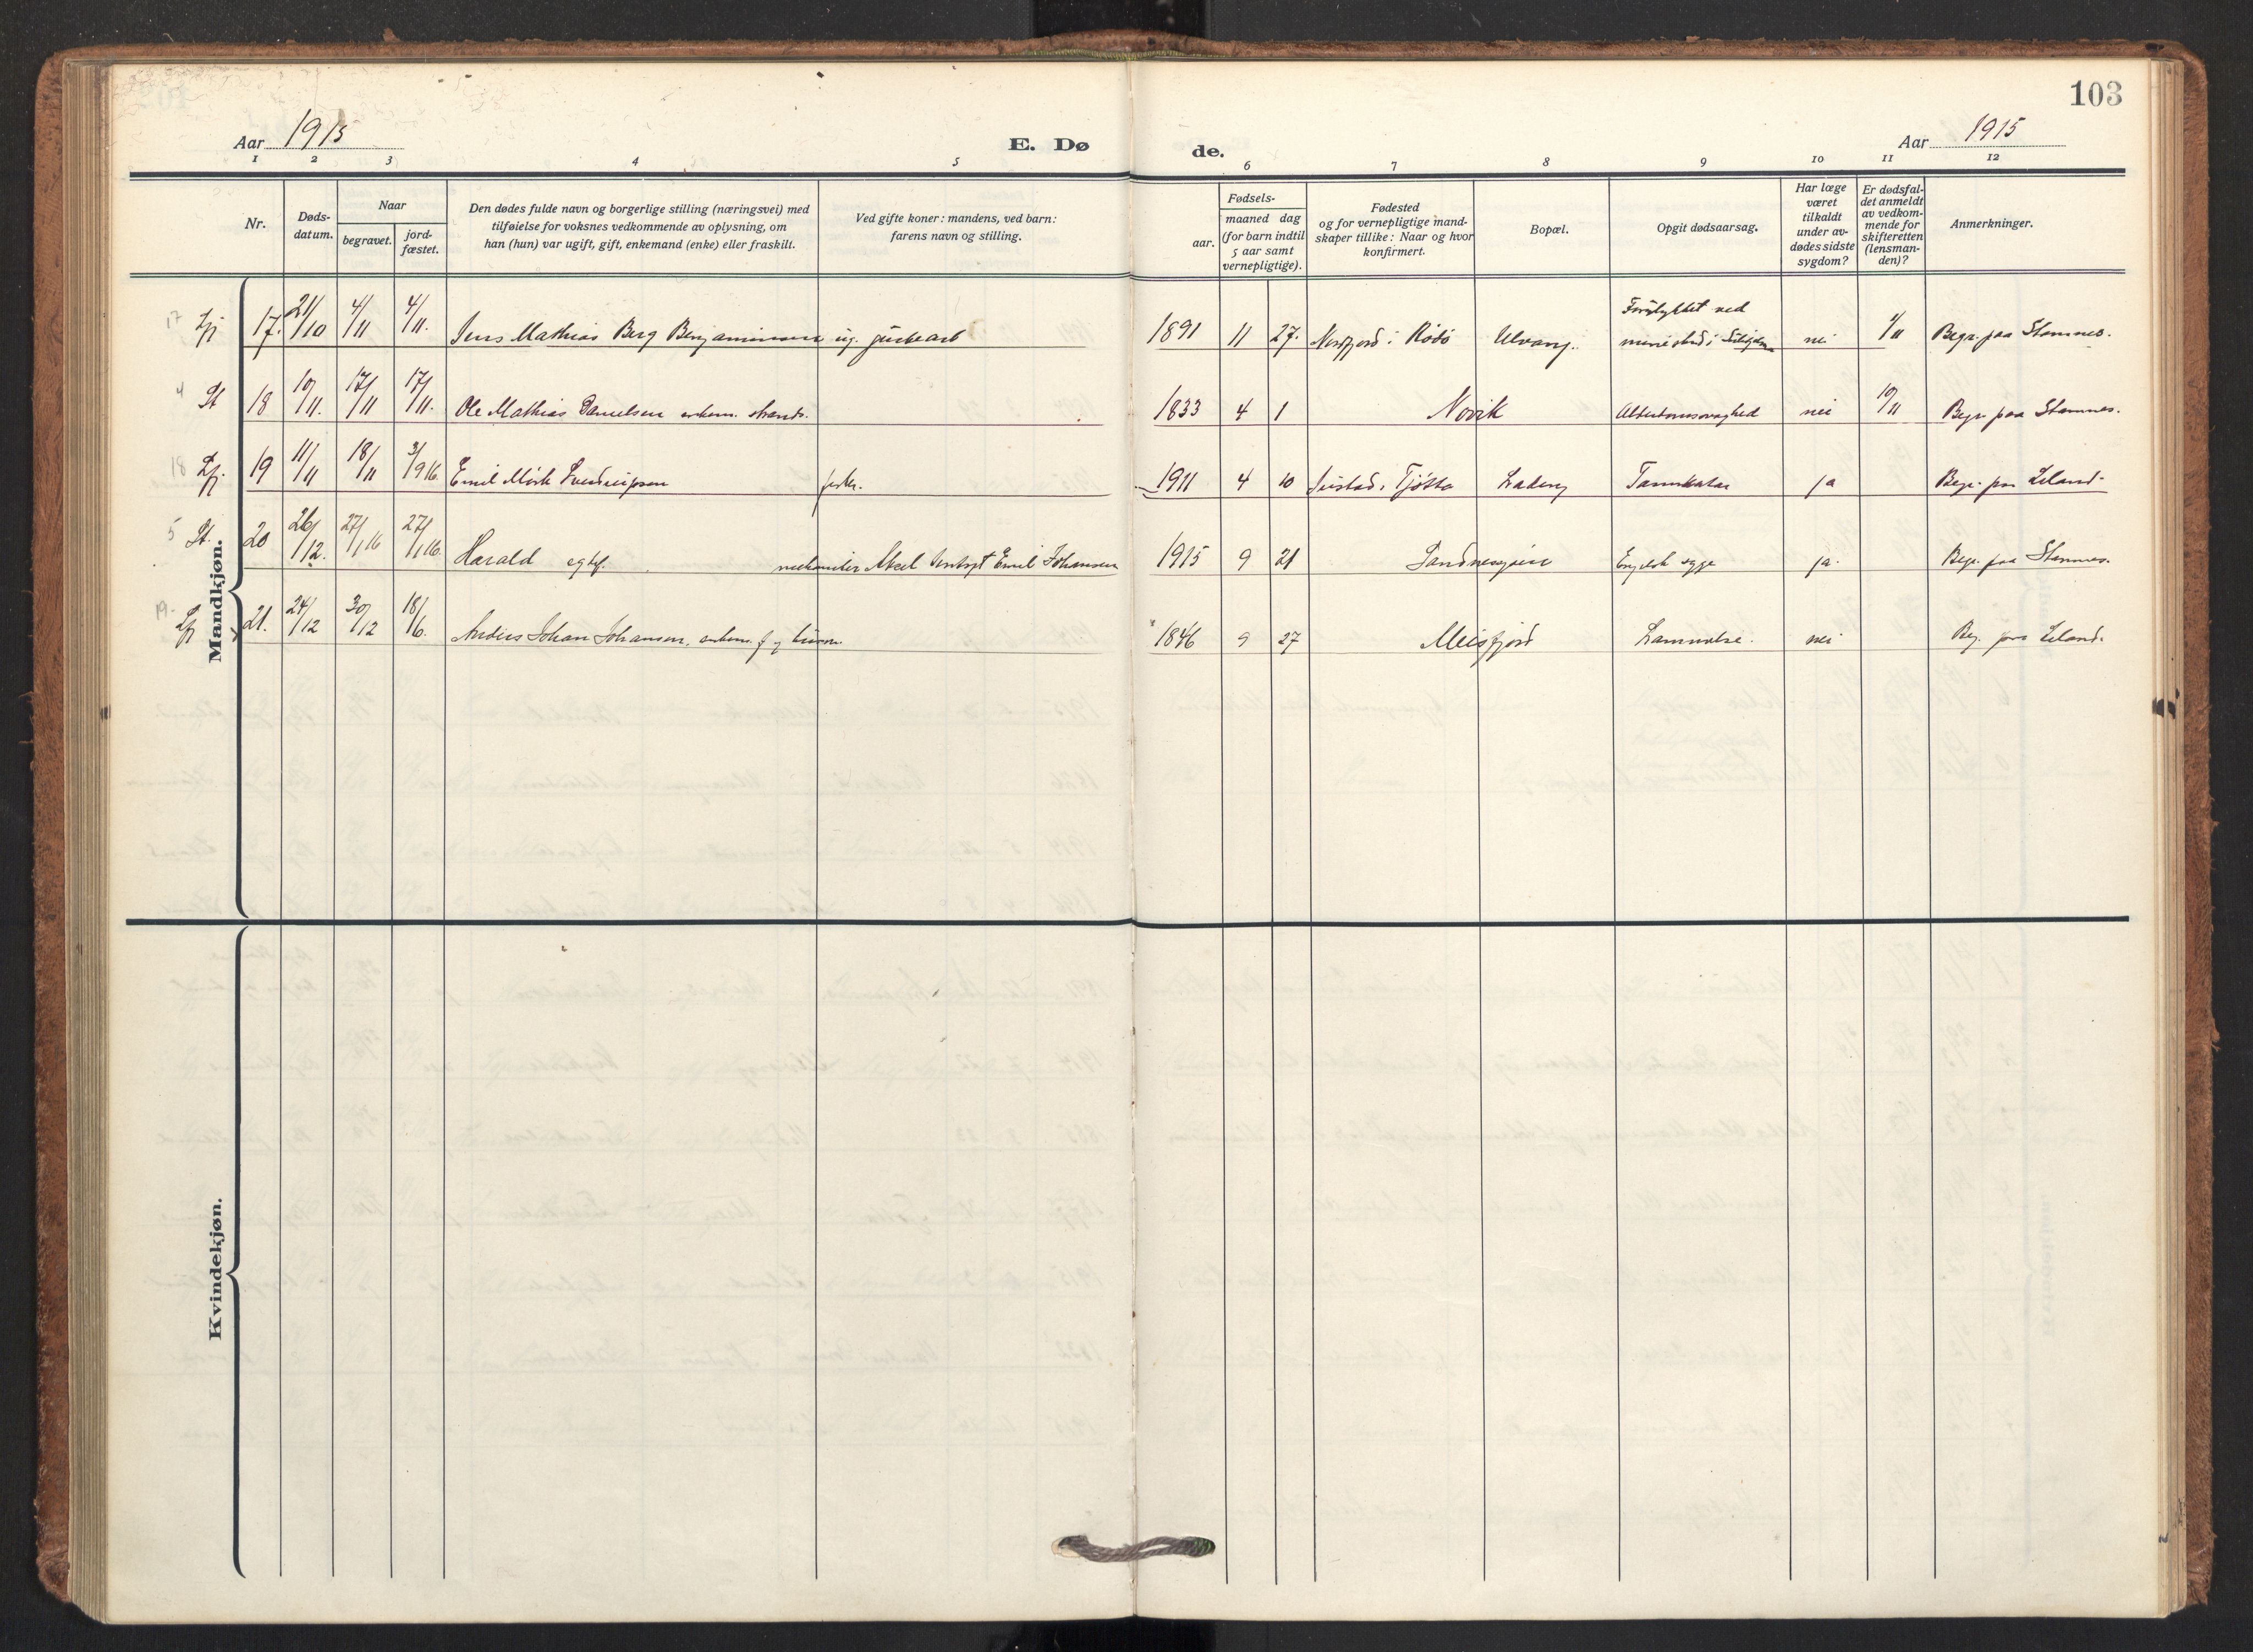 103
Aar 1915 E. Dø de. Aar 1915
1 2 3 4 5 6 7 8 9 10 11 12
Nr.
Døds-
datum.
Naar
begravet.
jord-
fæstet.
Den dødes fulde navn og borgerlige stilling (næringsvei) med
tilføielse for voksnes vedkommende av oplysning, om
han (hun) var ugift, gift, enkemand (enke) eller fraskilt.
Ved gifte koner: mandens, ved barn:
farens navn og stilling.
Fødsels-
aar.
maaned dag
(for barn indtil
5 aar samt
vernepligtige).
Fødested
og for vernepligtige mand-
skaper tillike: Naar og hvor
konfirmert.
Bopæl.
Opgit dødsaarsag.
Har læge
været
tilkaldt
under av-
dødes sidste
sygdom?
Er dødsfal-
det anmeldt
av vedkom-
mende for
skifteretten
(lensman-
den)?
Anmerkninger.
Mandkjøn.
17 17. 21/10 4/11 4/11. Jens Mathias Berg Benjaminsen ug. 1891 11 27. i Rødö Ulvang. Forulykket ved i nei Begr. paa Stamnes.
4 St 18 10/11. 17/11 17/11. Ole Mathias Danielsen enkem. 1833 4 1 Novik Alderdomssvaghed nei 10/11 Begr. paa Stamnes.
18 19 11/11 18/11 3/9 16. Emil 1911 4 10 Tjötta ja Begr. paa Leland.
5 St. 20 26/12. 27/1 16 27/1 16. Harald egtef. Emil Johansen 1915 9 21 Engelsk syge ja. Begr. paa Stamnes.
19. 21. 24/12 30/12 18/6. Anders Johan Johansen, enkem. 1846 9 27 Meisfjord Lammelse. nei Beg. paa Leland.
Kvindekjøn.